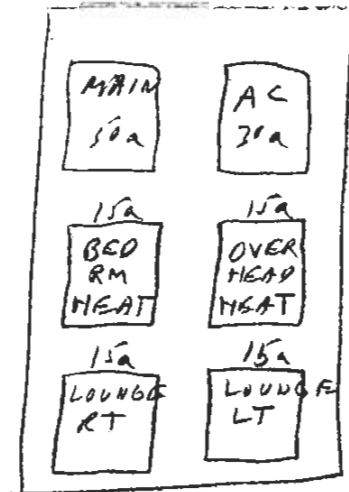 MAIN
50a
AC
30a
15a
BED
RM
HEAT
15a
OVER
HEAD
HEAT
15a
LOUNGE
RT
15a
LOUNGE
LT